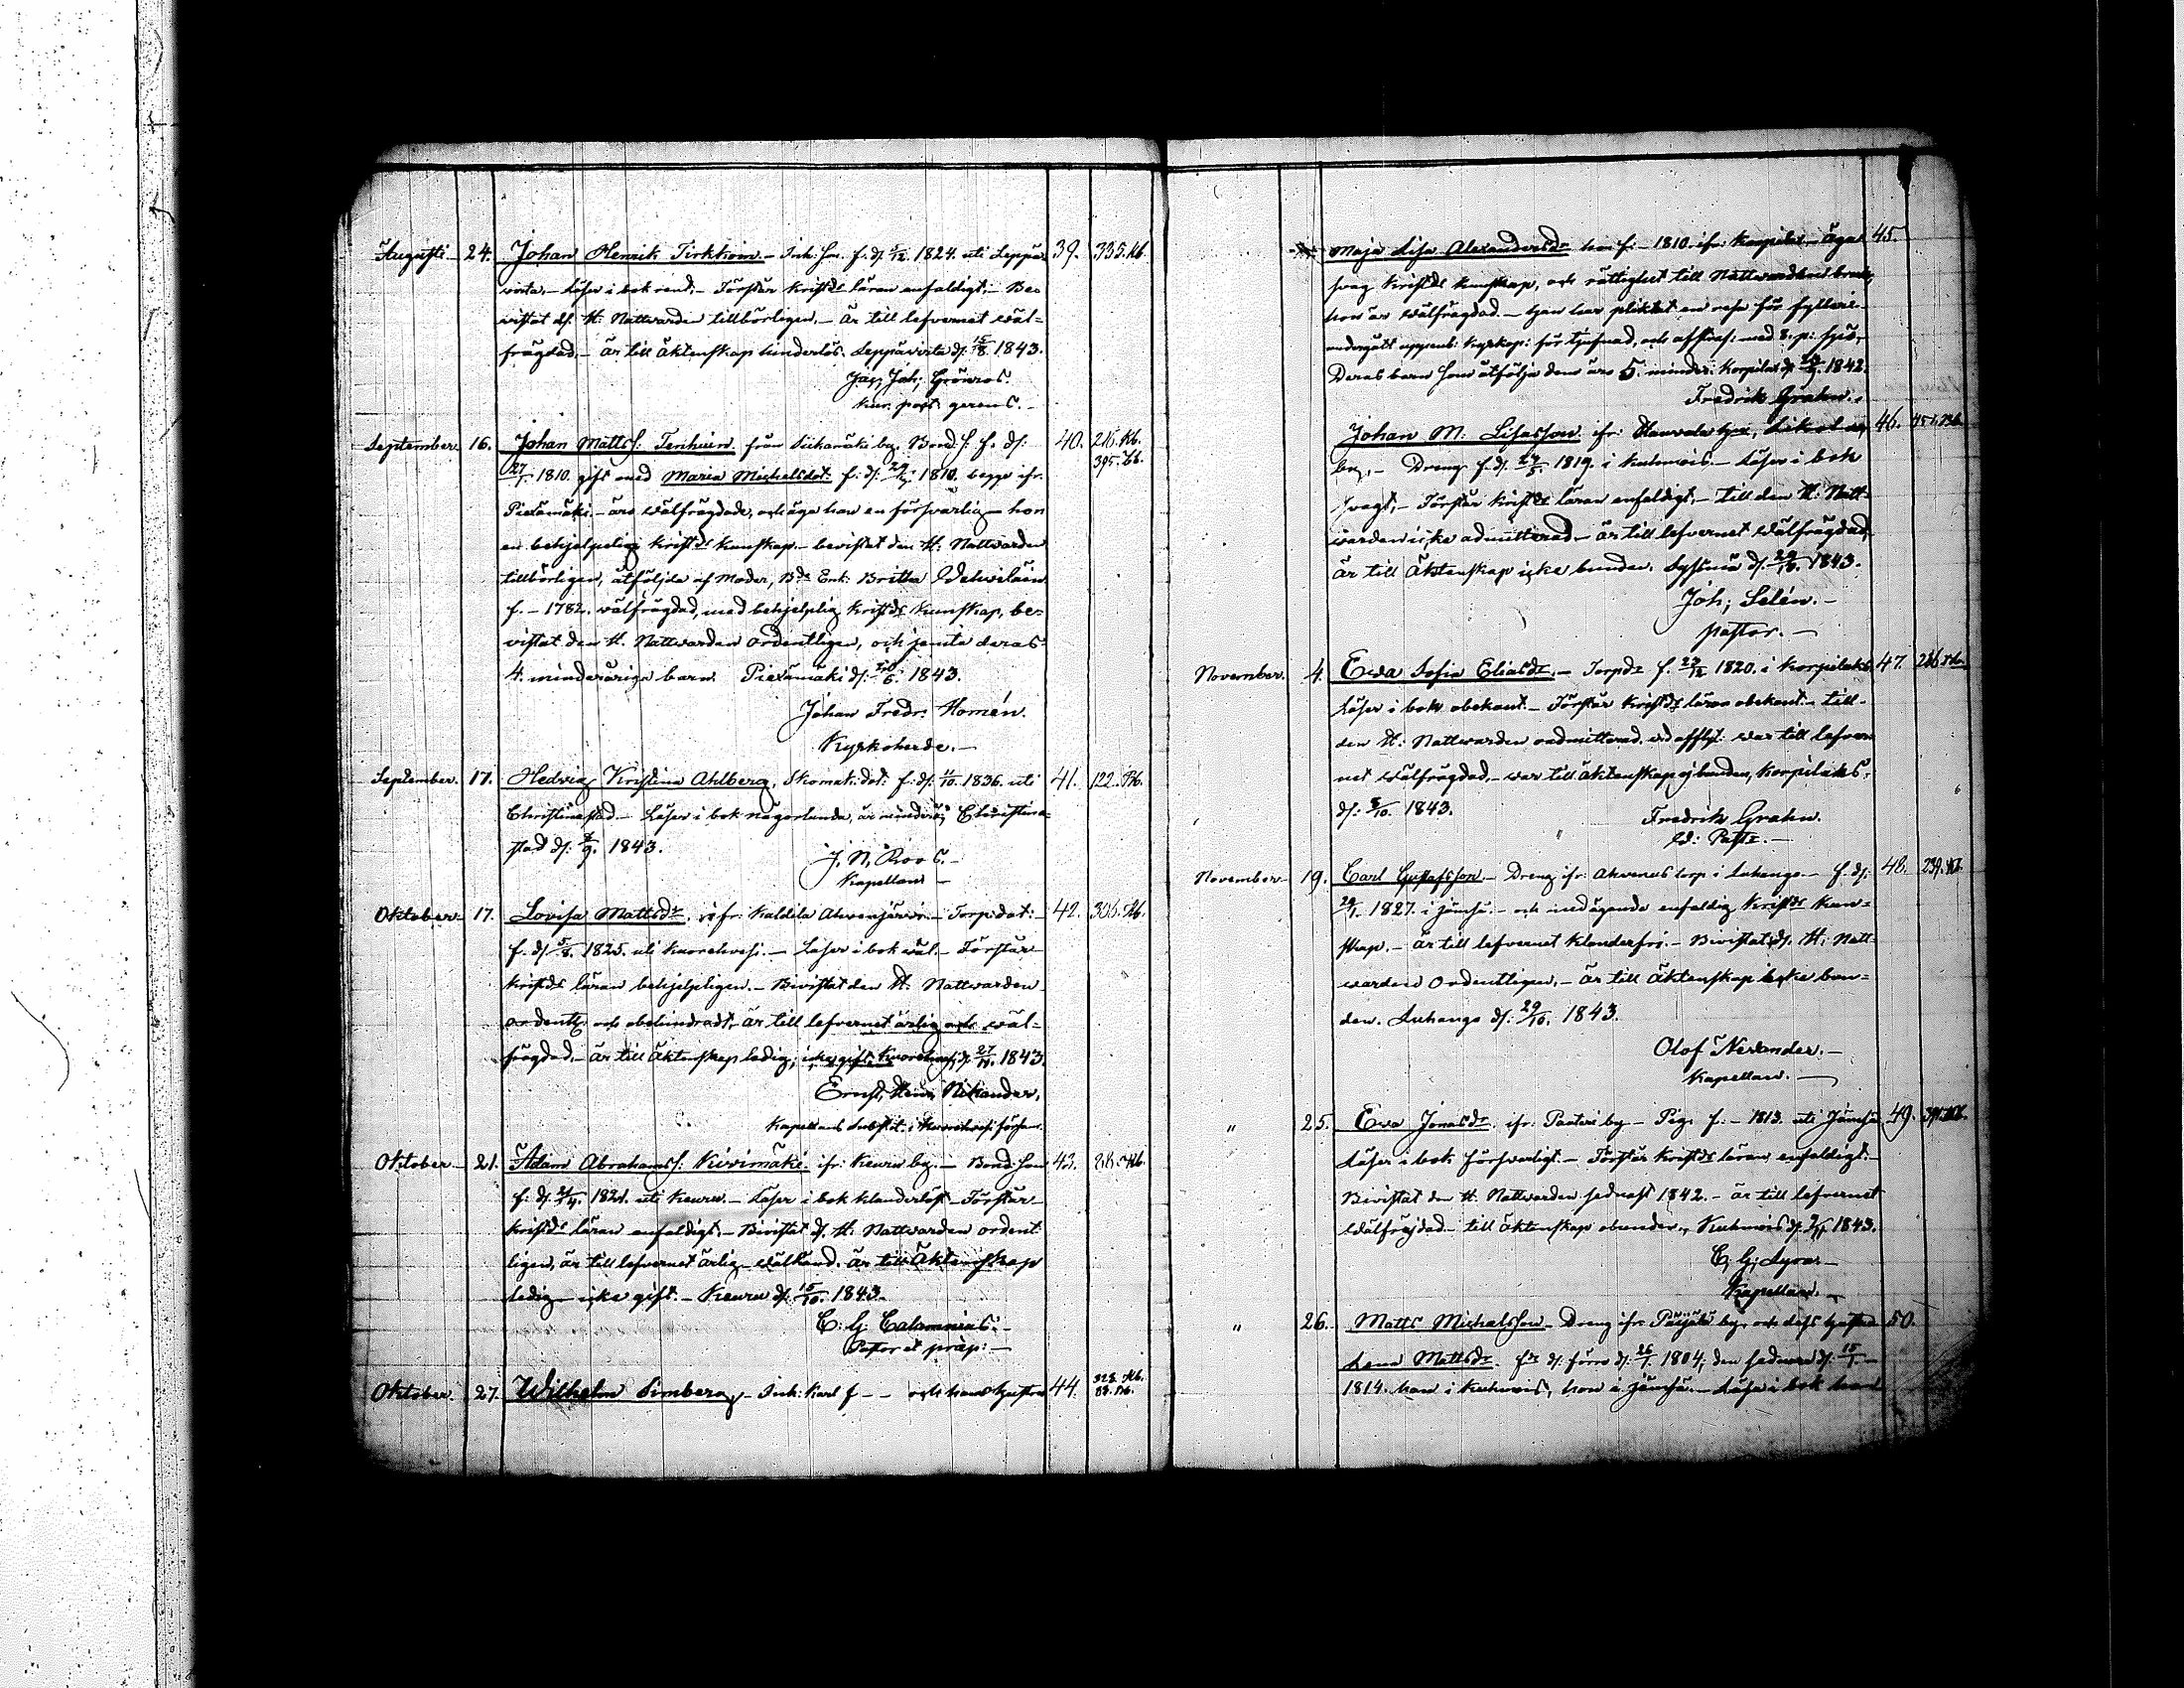 Augusti. 24. Johan Henrik Tirkkoin. Inh: son. f. d. 1824. uti Leppä- 39. 335. Kb.
virta. Läser i bok rend. Förstår Kristds läran enfaldigt. Be-
vistat d. H. Nattvarden tillbörligen. är till lefvernet wäl-
frägdad. är till äktenskap hinderlös. Leppävirta d. 15/8. 1843.
Joh; Grönros.
past: gerens.
September. 16. Johan Mattss: Tenhuin från by. Bond: s. f. d: 40. 215. Kb.
395. Kb.
27/1. 1810. gift med Maria Michelsdot: f: d: 1810. begge ifr:
Piexämäki. äro wälfrägdade, och äga han en försvarlig hon
en behjelpelig Kristds kunskap. bevistat den H: Nattvarden
tillbörligen, åtföljda af Moder, Bds Enk: Britta
f. 1782. wälfrägdad, med behjelplig Kristds kunskap, be-
vistat den H. Nattwarden ordentligen, och jemte deras
4. minderåriga barn. Piexämäki d: 1843.
Johan Fredr: Homén.
Kyrkoherde.
September. 17. Hedvig Kristina Ahlberg, Skomak: dot: f: d: 1836. uti 41. 122. Kb.
Christinestad. Läser i bok någorlunda, är minderå; Christine-
stad d: 1843.
J. N. Roos.
Kapellan
Oktober. 17. Lovisa Mattsdr. ifr: Kaldila Ahvenjärvi. Torp: dot: 42. 306. Kb.
f. d. 5/8. 1825. uti Kuorehvesi. Läser i bok wäl. Förstår
Kristds läran behjelpligen. Bivistat den H. Nattwarden
ordentl: och obehindradt, är till lefvernet ärlig och wäl-
frägdad. är till äktenskap ledig; icke gift. Kuorehvesi d. 1843.
Ernst Henr; Nikander,
Kapellans Substit: i Kuorehvesi förs:
Oktober. 21. Adam Abrahamss: Kivimäki ifr: Keuru by. Bond: son 43. Kb.
f. d. 182 uti Keuru. Läser i bok klanderlöst. Förstår
Kristds läran enfaldigt. Bivistat d. H. Nattwarden ordent-
ligen, är till lefvernet ärlig wälkänd. är till Äktenskap
ledig icke gift. Keuru d. 15/10. 1843.
C: G: Calamnius:
Pastor et præp:
Oktober. 27. Wilhelm Simberg. Inh: Karl f och hans hustru 44. 328. Kb.
Maja Lisa Alexandersdr hon f: 1810. ifr: Korpilax. äga 45.
svag Kristds kunskap, och rättighet till Nattwardens bruk,
hon är wälfrägdad. Han har pliktat en resa för fylleri
undergått uppenb: kyrkop: för tjufnad, och afstraf: med 8. p: spö,
Deras barn som åtfölja dem äro 5. mindrå: Korpilax d. 1842.
Fredrik Grahn.
Johan M: Lisasson. ifr: 46.
by. Dreng f. d. 24/5. 1819. i Kuhmois. Läser i bok
svagt. Förstår Kristds läran enfaldigt. Till den H: Natt-
varden icke admitterad. är till lefvernet wälfrägdad,
är till äktenskap icke bunden. Sysmä d. 29/10. 1843.
Joh; Selén.
pastor.
November. 4. Ewa Sofia Eliasdr. Torpdr f. 1820. i Korpilaks 47.
Läser i bok obekant. Förstår Kristds läran obekant. till
den H: Nattwarden oadmitterad. vid afflyt: war till lefver-
net wälfrägdad. war till äktenskap ej bunden, Korpilaks.
d: 8/10. 1843.
Fredrik Grahn.
November 19. Carl Gustafsson. Dreng ifr: Ahvenus torp i Luhango. f. d: 48. 239. Kb.
29/1. 1827. i Jämsä. och medägande enfaldig Kristds kun-
skap. är till lefvernet klanderfri. Bivistat d. H: Natt-
warden ordentligen. är till äktenskap icke bun-
den. Luhango d: 29/10. 1843.
Olof Nexander.
Kapellan.
" 25. Ewa Jonasdr. ifr: by Pig: f. 1813. uti Jämsä 49.
Läser i bok försvarligt. Förstår Kristds läran enfaldigt.
Bivistat den H. Nattwarden sednast 1842. är till lefvernet
wälfräjdad. till äktenskap obunden. Kuhmois d. 1843.
C. G;
Kapellan.
" 26. Matts Michelsson Dreng ifr: by, och dess hustru 50.
Lena Mattsdr. f. d. förra d. 26/1. 1804; den sednare d. 15/1.
1814. han i Kuhmois, hon i Jämsä. Läser i bok han